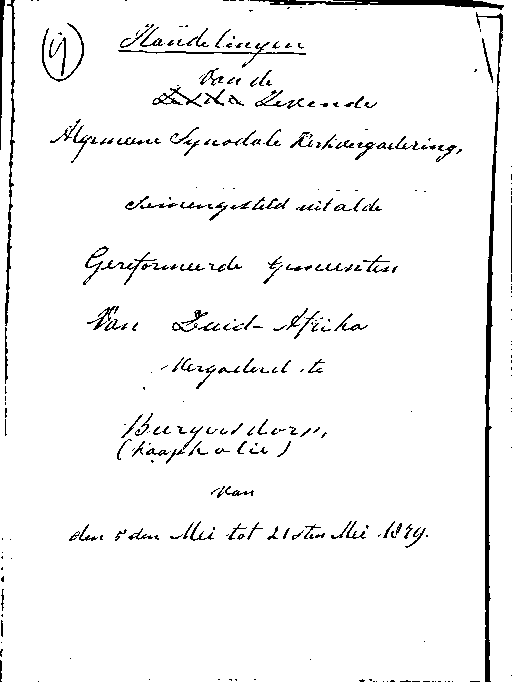 Handelingen
Van de
Zesde Zevende
Algemeene Synodale Kerkvergadering,
samengesteld uit al de
Gereformeerde Gemeenten
Van Zuid-Afrika
Vergaderd te
Burgersdorp,
(Kaapkolie)
van
den 5den Mei tot 21sten Mei 1879.